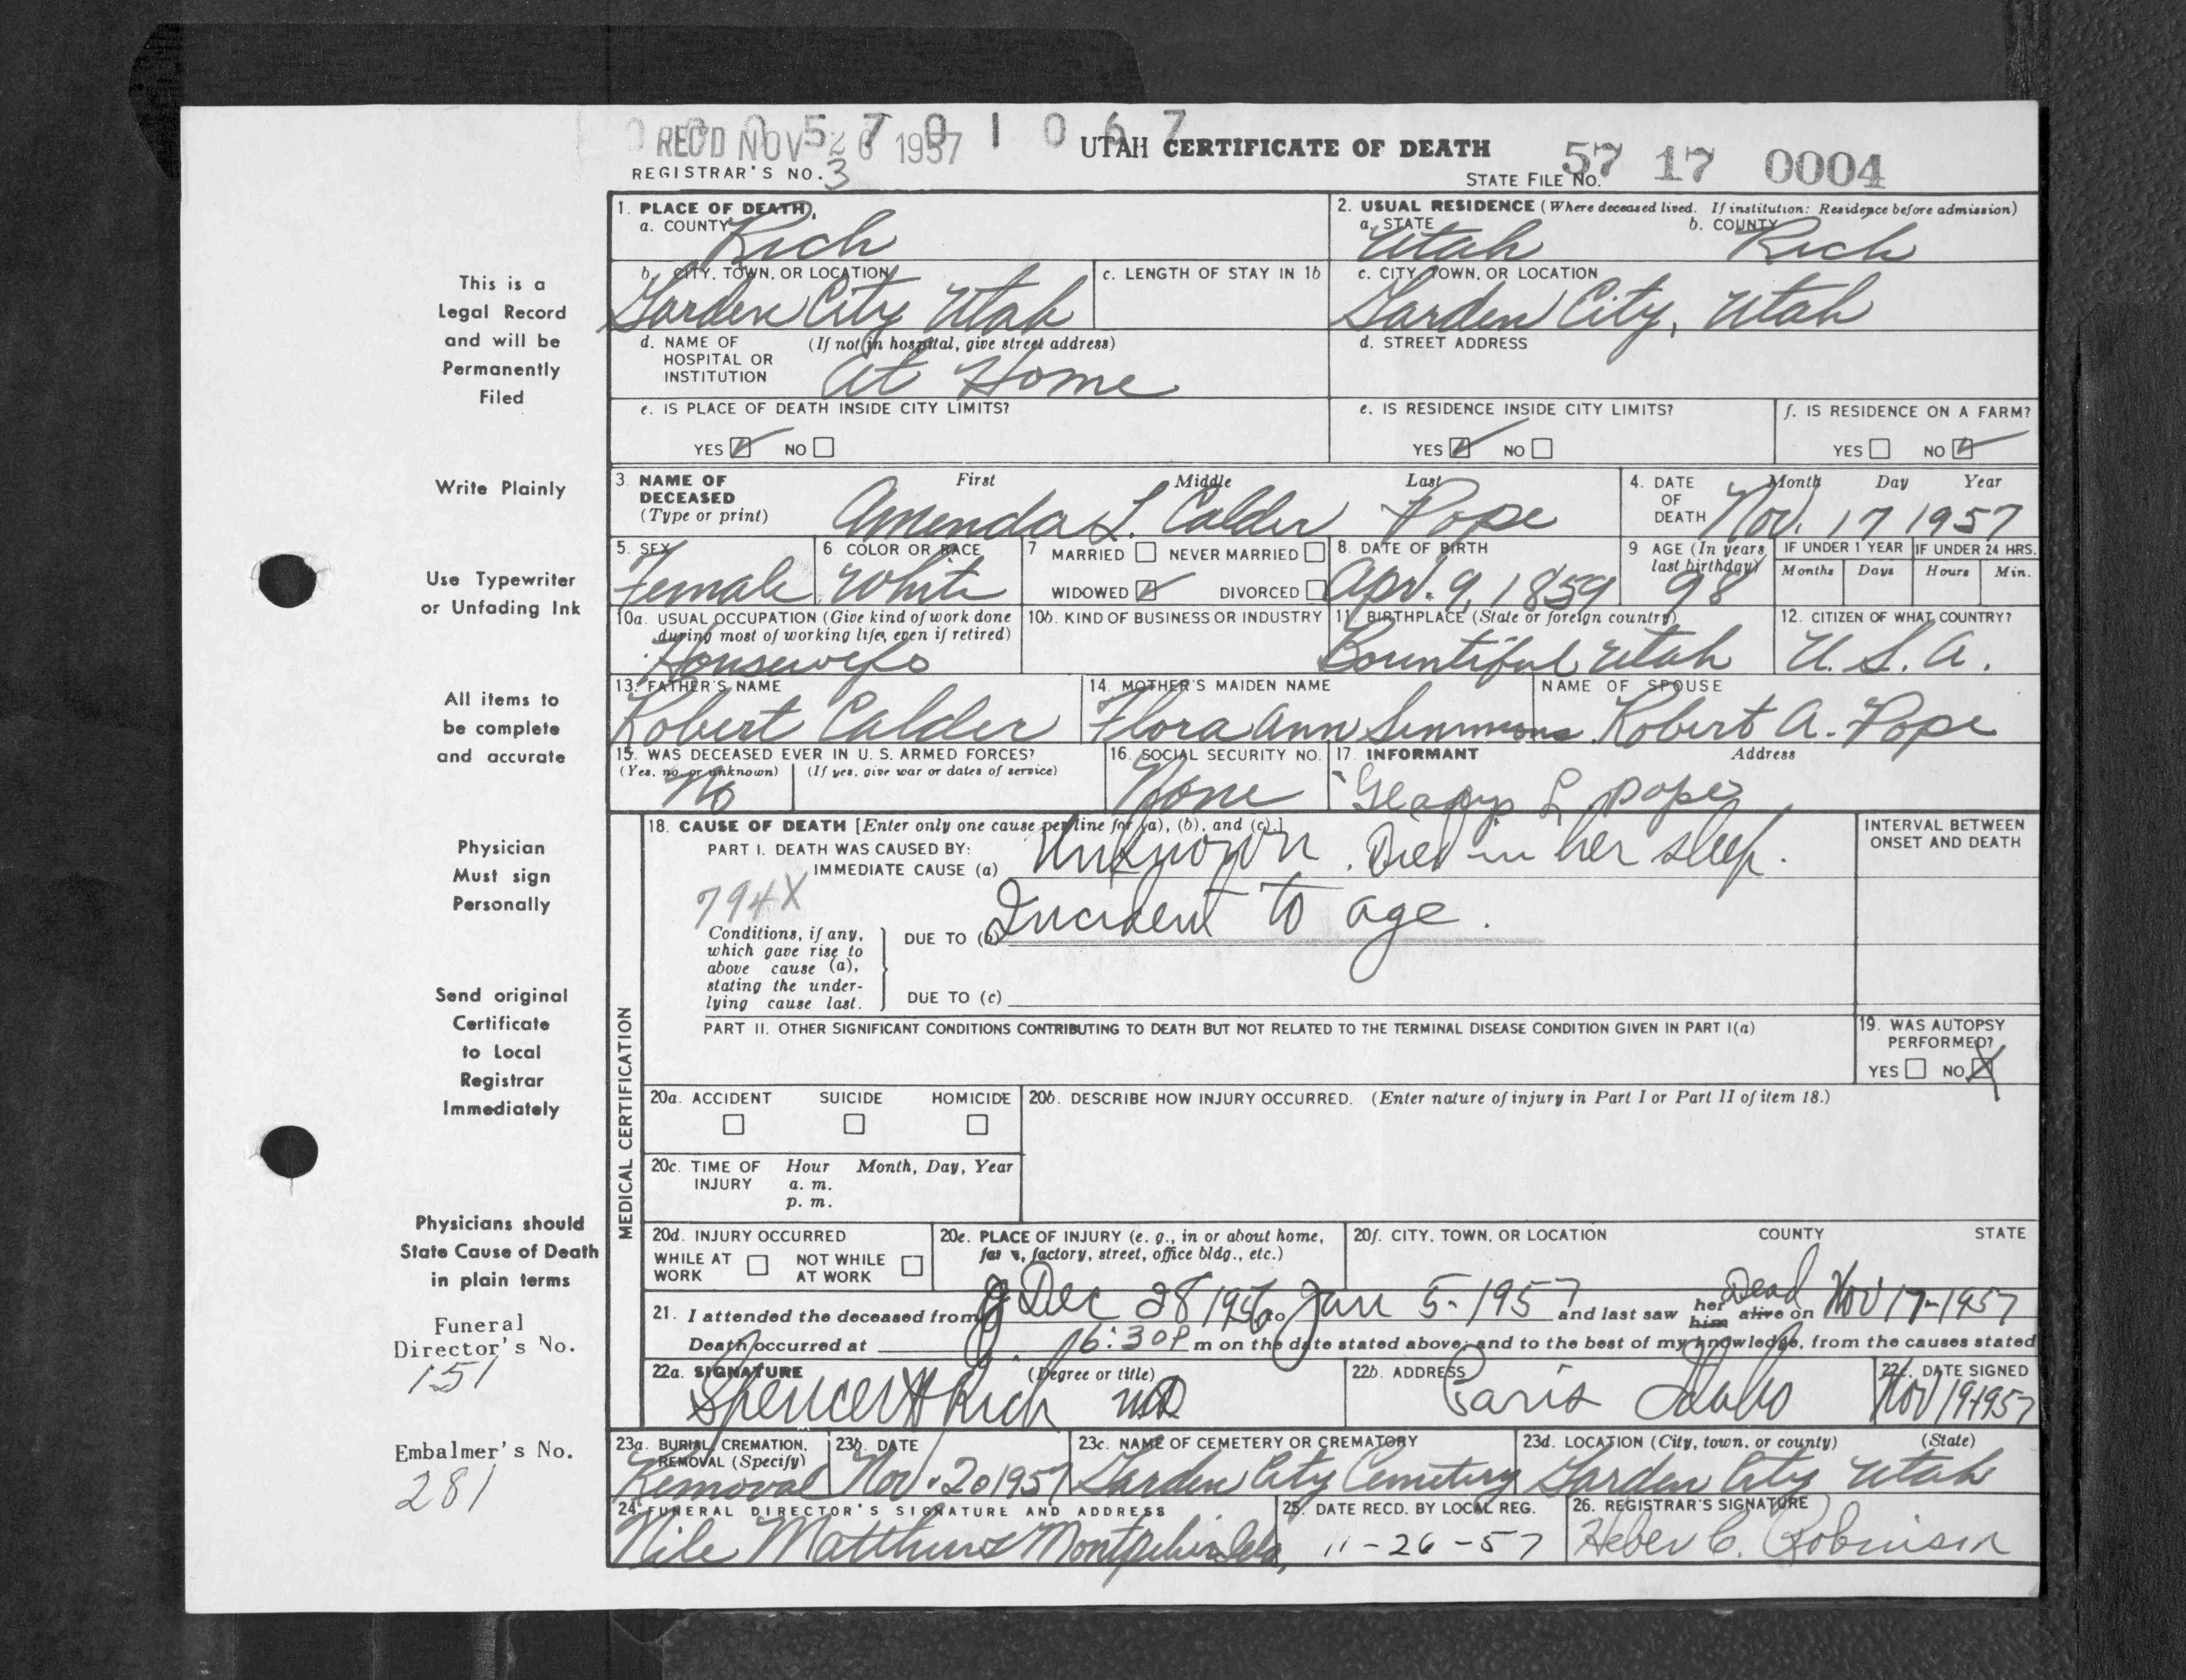 REC'D NOV 26 1957
0 0 0 5 7 0 1 0 6 7
UTAH CERTIFICATE OF DEATH
REGISTRAR'S NO. 3
STATE FILE NO. 57 17 0004
This is a
Legal Record
and will be
Permanently
Filed
Write Plainly
Use Typewriter
or Unfading Ink
All items to
be complete
and accurate
Physician
Must sign
Personally
Send original
Certificate
to Local
Registrar
Immediately
Physicians should
State Cause of Death
in plain terms
Funeral
Director's No.
151
Embalmer's No.
281
1. PLACE OF DEATH
a. COUNTY Rich
2. USUAL RESIDENCE (Where deceased lived. If institution: Residence before admission)
a. STATE Utah b. COUNTY Rich
b. CITY, TOWN, OR LOCATION
Garden City Utah
c. LENGTH OF STAY IN 1b
c. CITY, TOWN, OR LOCATION
Garden City, Utah
d. NAME OF HOSPITAL OR INSTITUTION (If not in hospital, give street address)
At Home
d. STREET ADDRESS
e. IS PLACE OF DEATH INSIDE CITY LIMITS?
YES NO
e. IS RESIDENCE INSIDE CITY LIMITS?
YES NO
f. IS RESIDENCE ON A FARM?
YES NO
3. NAME OF DECEASED (Type or print) First Middle Last
Amenda L. Calder Pope
4. DATE OF DEATH Month Day Year
Nov. 17 1957
5. SEX
Female
6. COLOR OR RACE
White
7 MARRIED NEVER MARRIED
WIDOWED DIVORCED
8. DATE OF BIRTH
Apr. 9, 1859
9 AGE (In years last birthday)
98
IF UNDER 1 YEAR
Months Days
IF UNDER 24 HRS.
Hours Min.
10a. USUAL OCCUPATION (Give kind of work done during most of working life, even if retired)
Housewife
10b. KIND OF BUSINESS OR INDUSTRY
11. BIRTHPLACE (State or foreign country)
Bountiful Utah
12. CITIZEN OF WHAT COUNTRY?
U. S. A.
13. FATHER'S NAME
Robert Calder
14. MOTHER'S MAIDEN NAME
Flora Ann Simmons
NAME OF SPOUSE
Robert A. Pope
15. WAS DECEASED EVER IN U. S. ARMED FORCES?
(Yes, no, or unknown) (If yes, give war or dates of service)
No
16. SOCIAL SECURITY NO.
None
17. INFORMANT Address
L Pope
MEDICAL CERTIFICATION
18. CAUSE OF DEATH [Enter only one cause per line for (a), (b), and (c).]
PART I. DEATH WAS CAUSED BY:
IMMEDIATE CAUSE (a) Unknown. Died in her sleep.
794X
Conditions, if any, which gave rise to above cause (a), stating the underlying cause last.
DUE TO (b) Incident to age.
DUE TO (c)
INTERVAL BETWEEN ONSET AND DEATH
PART II. OTHER SIGNIFICANT CONDITIONS CONTRIBUTING TO DEATH BUT NOT RELATED TO THE TERMINAL DISEASE CONDITION GIVEN IN PART I(a)
19. WAS AUTOPSY PERFORMED?
YES NO
20a. ACCIDENT SUICIDE HOMICIDE
20b. DESCRIBE HOW INJURY OCCURRED. (Enter nature of injury in Part I or Part II of item 18.)
20c. TIME OF INJURY Hour Month, Day, Year
a. m.
p. m.
20d. INJURY OCCURRED
WHILE AT WORK NOT WHILE AT WORK
20e. PLACE OF INJURY (e. g., in or about home, farm, factory, street, office bldg., etc.)
20f. CITY, TOWN, OR LOCATION COUNTY STATE
21. I attended the deceased from Dec 28 1956 to Jan 5-1957 and last saw her him alive Dead on Nov 17-1957
Death occurred at 6:30 P m on the date stated above; and to the best of my knowledge, from the causes stated
22a. SIGNATURE (Degree or title)
Spencer H Rich MD
22b. ADDRESS
Paris Idaho
22c. DATE SIGNED
Nov 19-1957
23a. BURIAL, CREMATION, REMOVAL (Specify)
Removal
23b. DATE
Nov. 20 1957
23c. NAME OF CEMETERY OR CREMATORY
Garden City Cemetery
23d. LOCATION (City, town, or county) (State)
Garden City Utah
24. FUNERAL DIRECTOR'S SIGNATURE AND ADDRESS
Nile Matthews Montpelier Ida,
25. DATE RECD. BY LOCAL REG.
11-26-57
26. REGISTRAR'S SIGNATURE
Heber C. Robinson